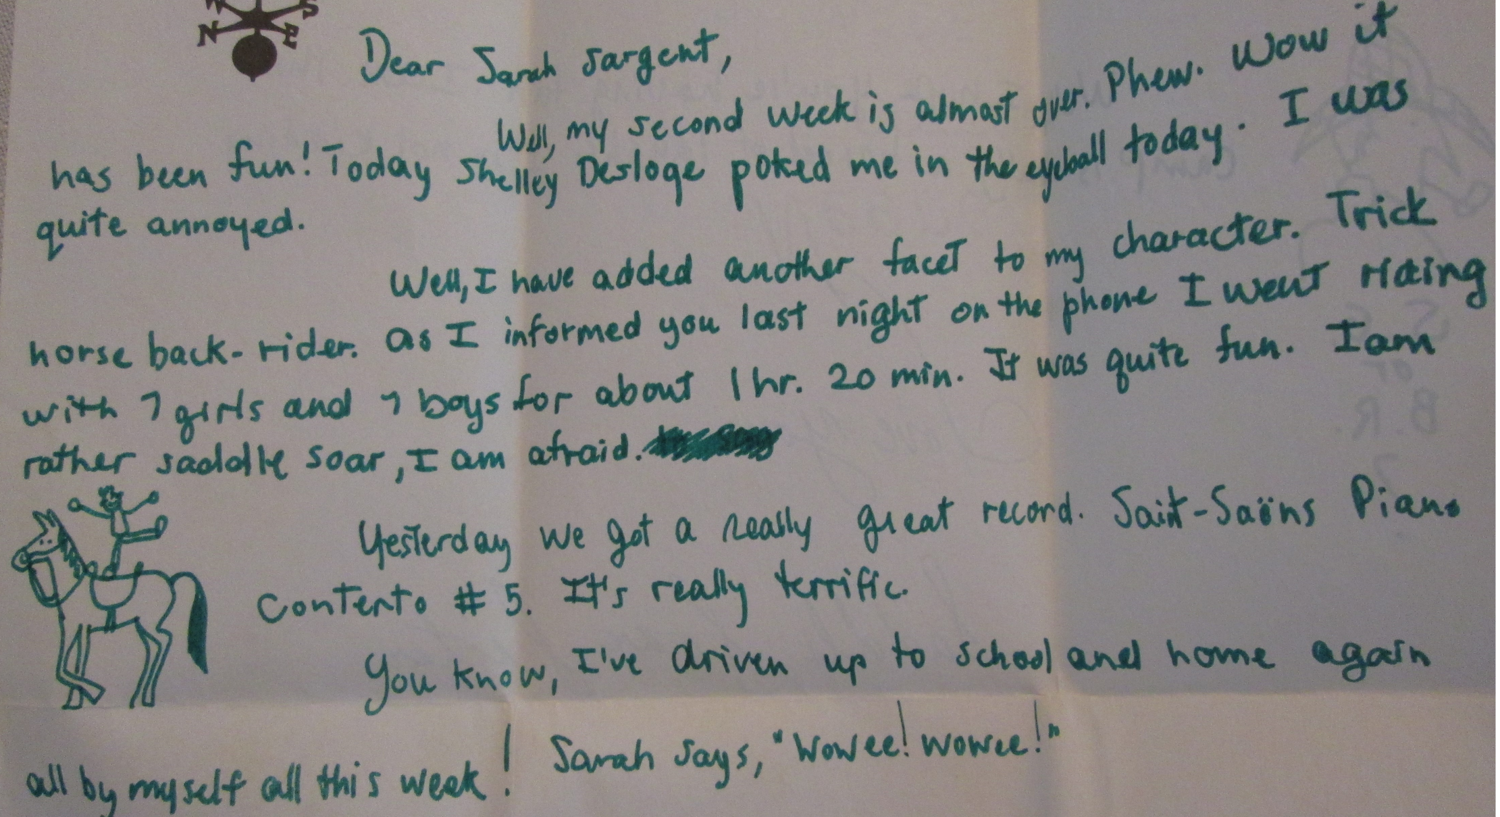 W S
N E
Dear Sarah Sargent,
Well, my second week is almost over. Phew. Wow it
has been fun! Today Shelley Desloge poked me in the eyeball today. I was
quite annoyed.
Well, I have added another facet to my character. Trick
horse back-rider. as I informed you last night on the phone I went riding
with 7 girls and 7 boys for about 1 hr. 20 min. It was quite fun. I am
rather saddle soar, I am afraid.
Yesterday we got a really great record. Saint-Saëns Piano
Conterto # 5. It's really terrific.
You know, I've driven up to school and home again
all by myself all this week! Sarah says, "Wowee! Wowee!"